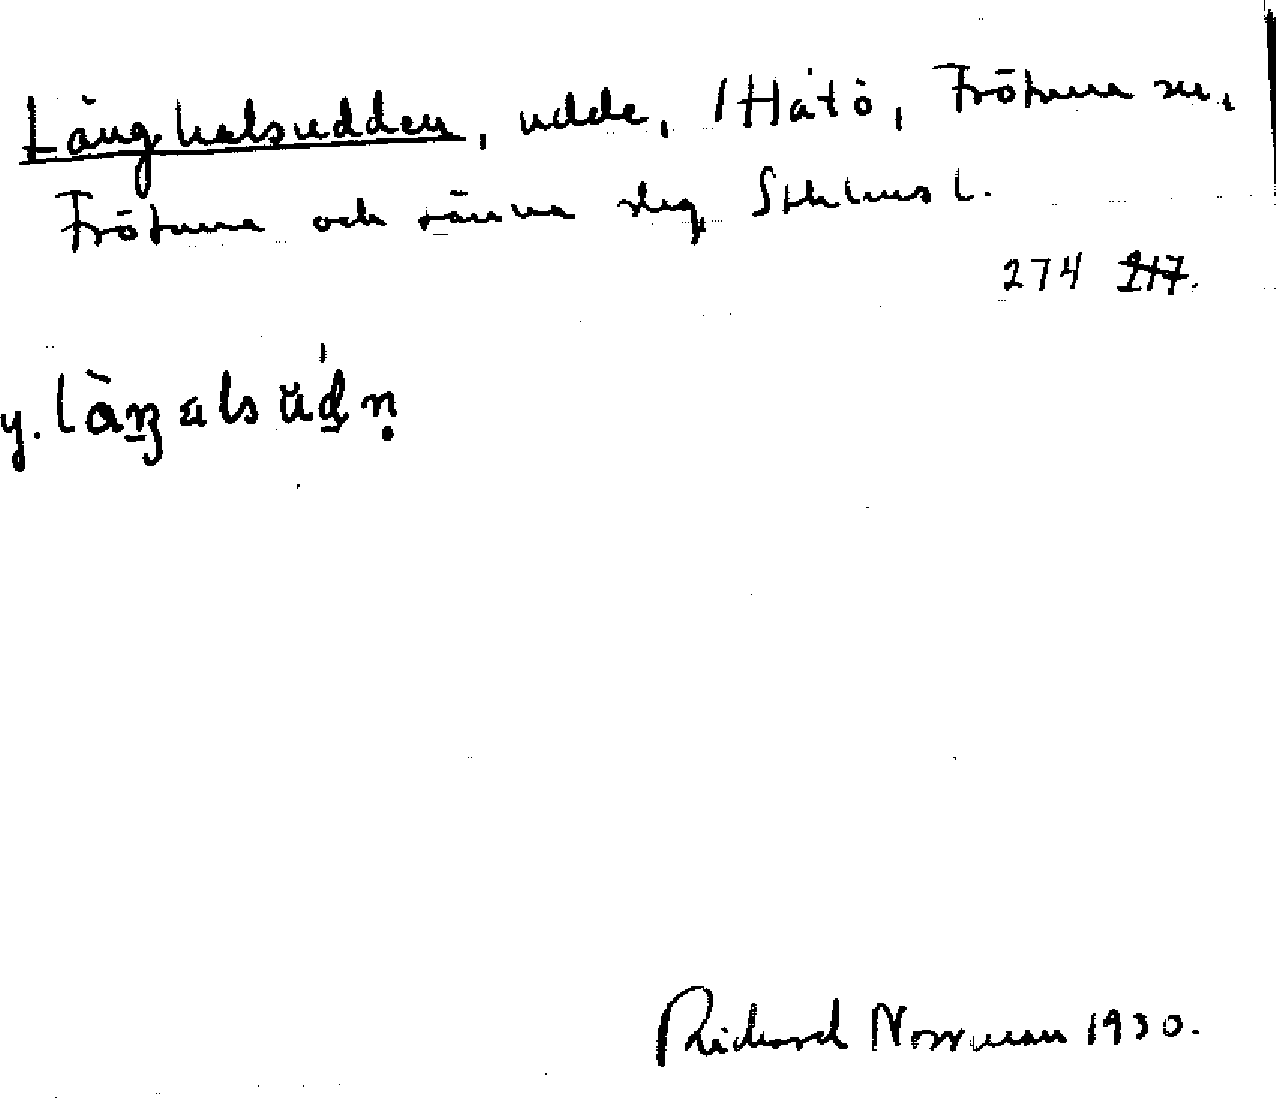 Långhalsudden, udde, 1 Håtö, Frötuna sn,
Frötuna och Länna slg, Sthlms l.
274 217.
y. làŋalsŭdn̥
Richard Norrman 1930.